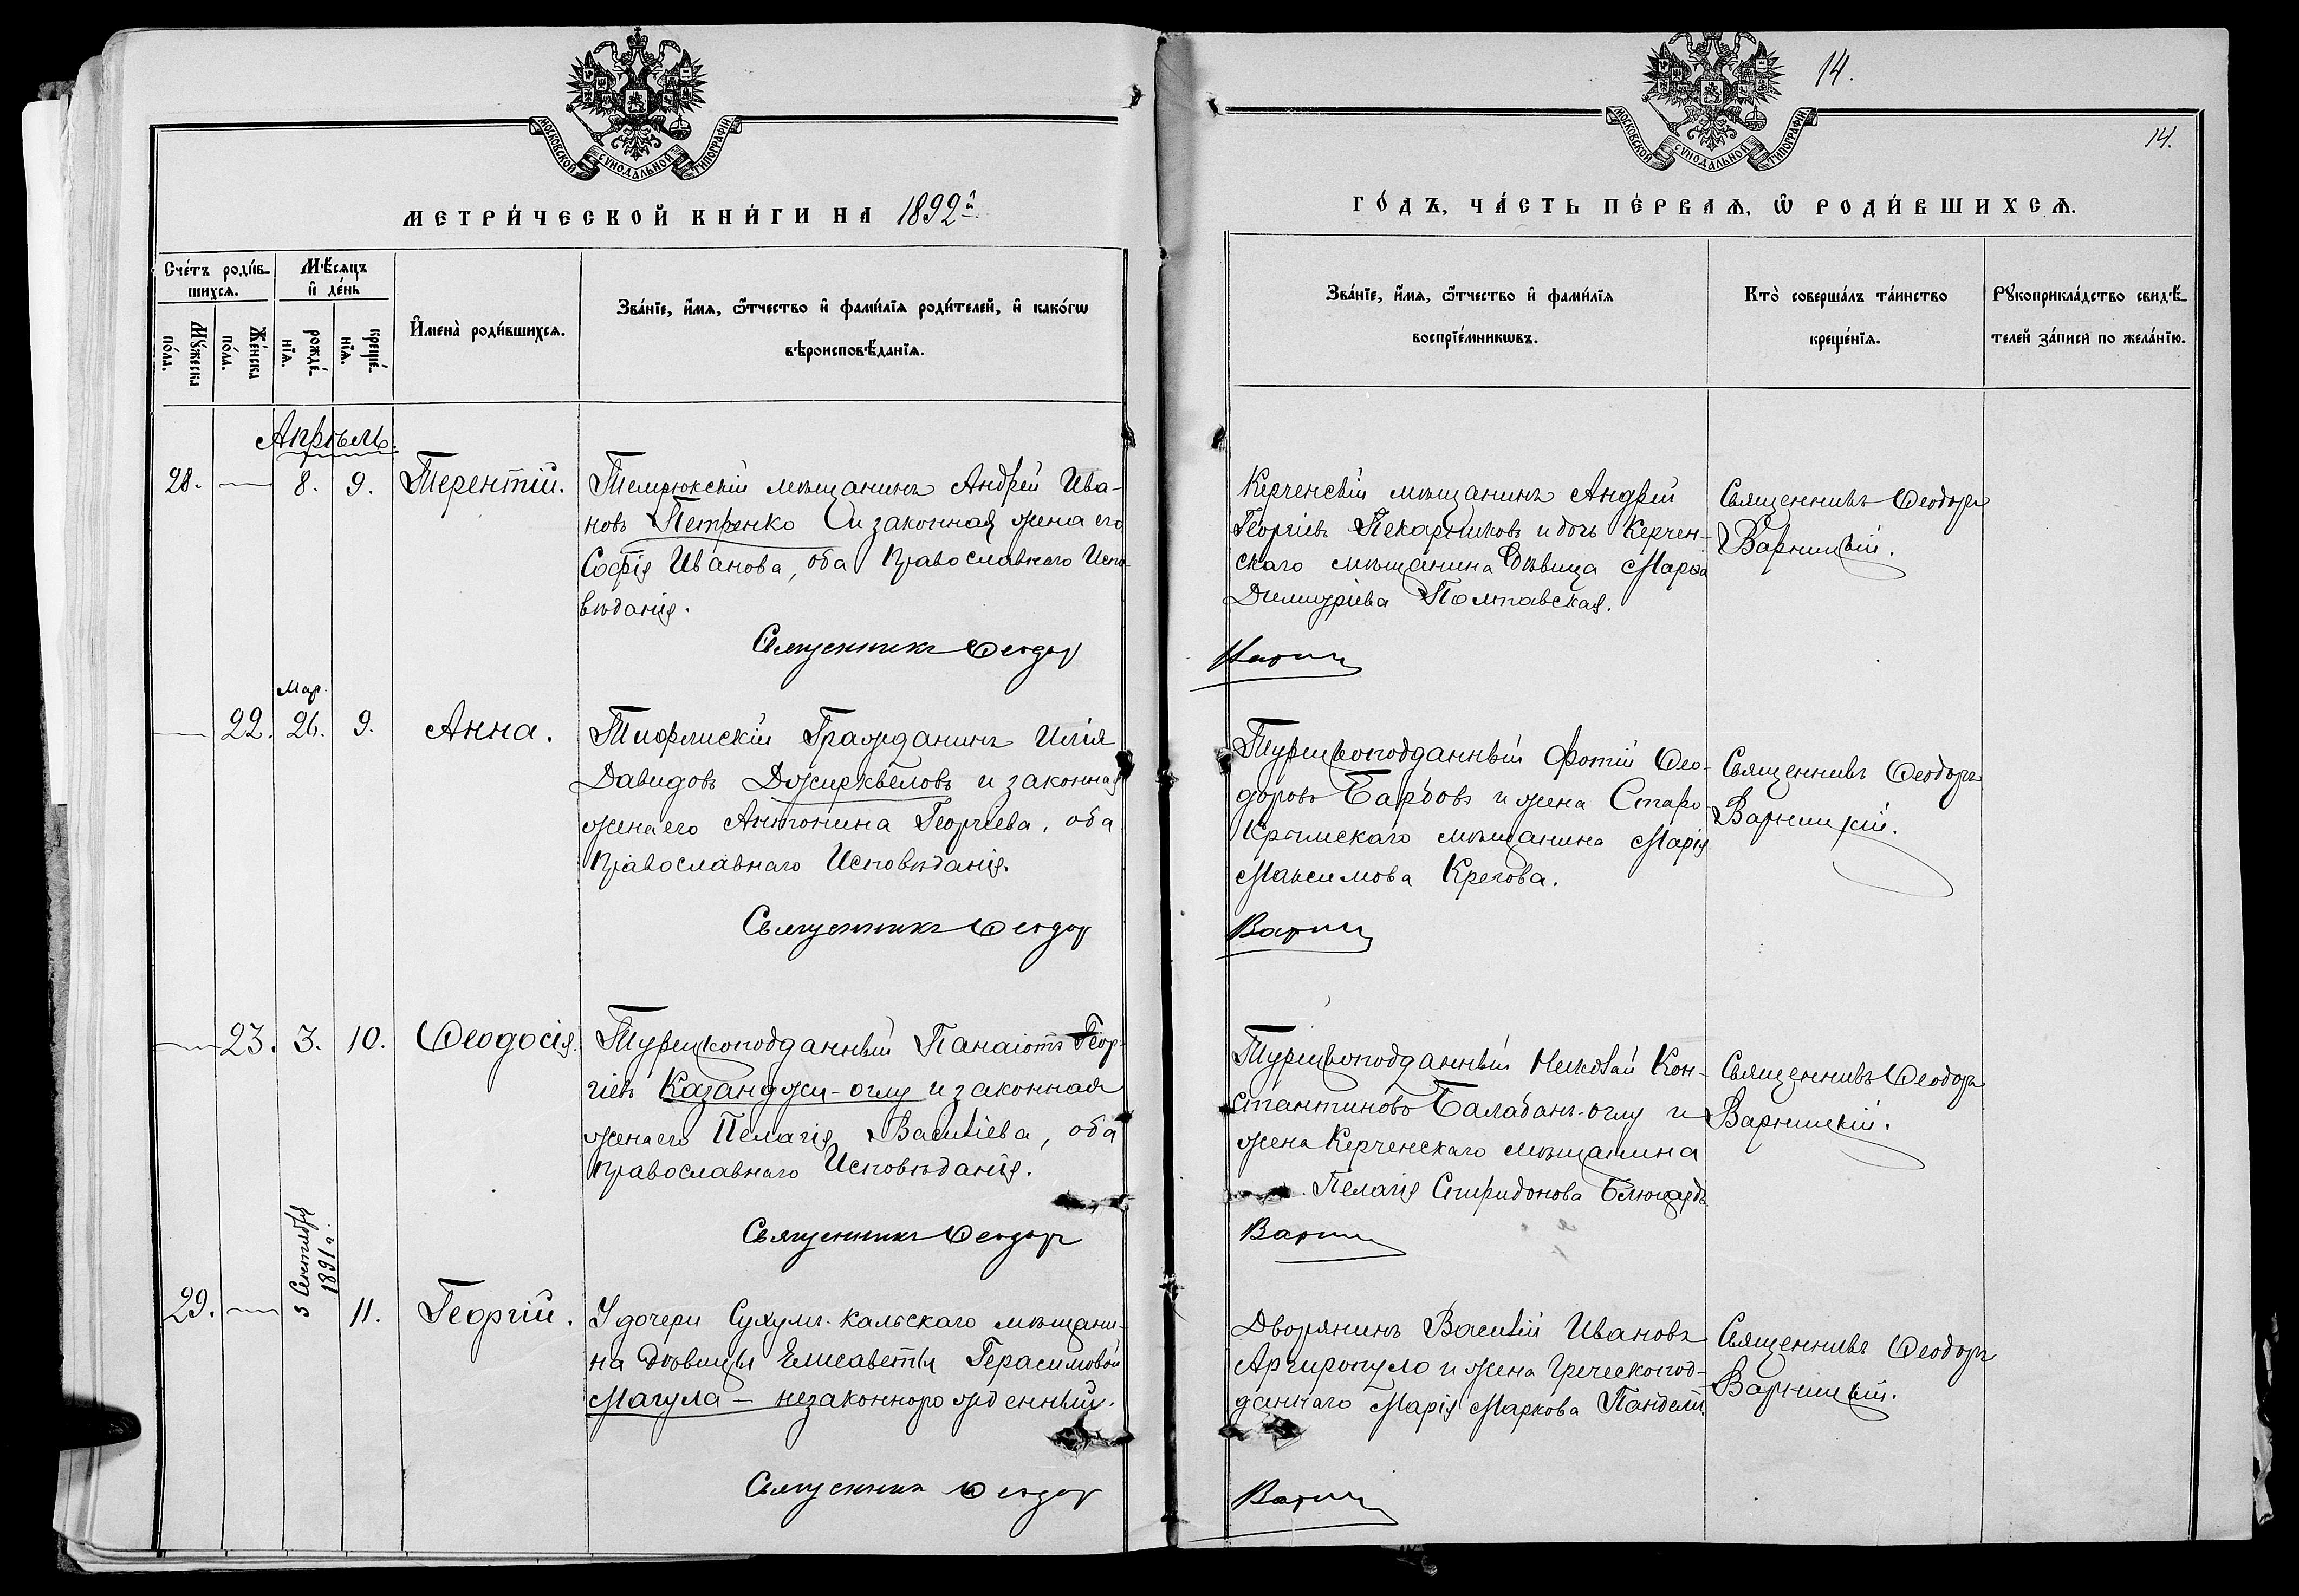 МОСКОВСКОЙ СѴНОДАЛЬНОЙ ТИПОГРАФІИ
МЕТРИ́ЧЕСКОЙ КНИ́ГИ НА 1892й
Сче́тъ роди́в-
шихсѧ.
Мꙋ́жеска
по́ла.
Же́нска
по́ла.
Мѣ́сѧцъ
и҆ де́нь
рожде́-
нїѧ.
креще́-
нїѧ.
И҆мена̀ роди́вшихсѧ.
Зва́нїе, и҆́мѧ, ѻ҆́тчество и҆ фами́лїѧ роди́телей, и҆ како́гѡ
вѣроисповѣ́данїѧ.
Апрѣль.
28. — 8. 9. Терентій.
Темрюкскій мѣщанинъ Андрей Ива-
новъ Петренко и законная жена его
Софія Иванова, оба Православнаго Испо-
вѣданія.
Священникъ Ѳеодор
Мар.
— 22. 26. 9. Анна.
Тифлискій Гражданинъ Илія
Давидовъ Джирквеловъ и законная
жена его Антонина Георгіева, оба
Православнаго Исповѣданія.
Священникъ Ѳеодор
— 23. 3. 10. Ѳеодосія.
Турецкоподданный Панаіотъ Геор-
гіевъ Казанджи-оглу и законная
жена его Пелагія Василіева, оба
Православнаго Исповѣданія.
Священникъ Ѳеодор
3 Сентября
1891 г.
29. — 11. Георгій.
У дочери Сухумъ-кальскаго мѣщани-
на дѣвицы Елисаветы Герасимовой
Магула — незаконнорожденный.
Священник Ѳеодор
14.
14.
МОСКОВСКОЙ СѴНОДАЛЬНОЙ ТИПОГРАФІИ
ГО́ДЪ, ЧА́СТЬ ПЕ́РВАѦ, Ѡ҆ РОДИ́ВШИХСѦ.
Зва́нїе, и҆́мѧ, ѻ҆́тчество и҆ фами́лїѧ
воспрїе́мникѡвъ.
Кто̀ соверша́лъ та́инство
креще́нїѧ.
Рꙋкоприкла́дство свидѣ́-
телей за́писи по жела́нїю.
Керченскій мѣщанинъ Андрей
Георгіевъ Пекарниковъ и дочь Керчен-
скаго мѣщанина дѣвица Марѳа
Димитріева Полтавская.
Священникъ Ѳеодоръ
Варницкій.
Варниц
Турецкоподданный Фотій Ѳео-
доровъ Барбовъ и жена Старо-
Крымскаго мѣщанина Марія
Максимова Крегова.
Священникъ Ѳеодоръ
Варницкій.
Варниц
Турецкоподданный Николай Кон-
стантиновъ Балабанъ-оглу и
жена Керченскаго мѣщанина
Пелагія Спиридонова
Священникъ Ѳеодоръ
Варницкій.
Варниц
Дворянинъ Василій Ивановъ
Аргиропуло и жена Греческопод-
даннаго Марія Маркова
Священникъ Ѳеодоръ
Варницкій.
Варниц